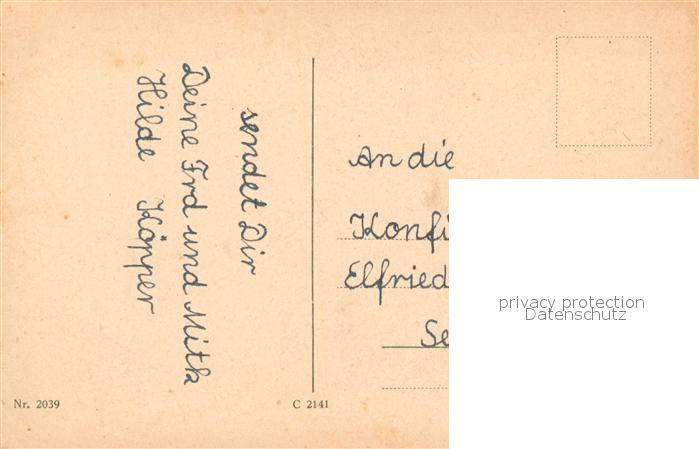 sendet Dir
Deine Frd und Mitk
Hilde Köpper
An die
Konfi
Elfried
Se
privacy protection
Datenschutz
Nr. 2039
C 2141